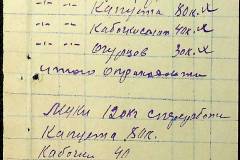 -"- -"- Капуста 80 к. X
-"- -"- Кабачки 40 к. X
-"- -"- Огурцов 30 к. X
итого
Муки 120 кг
Капуста 80 к.
Кабачки 40